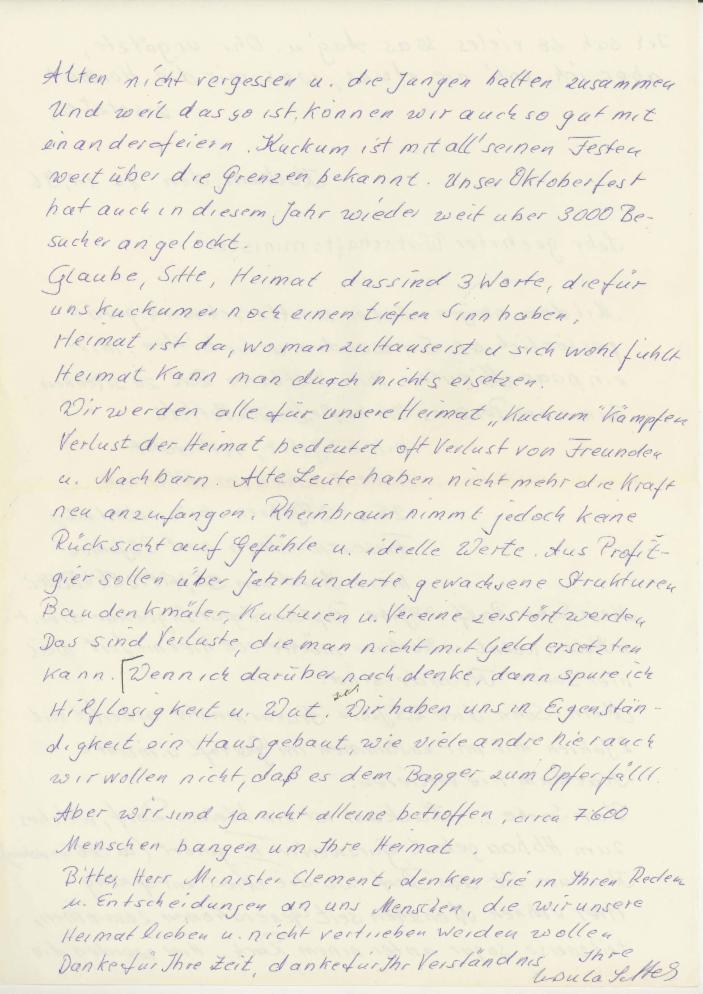 Alten nicht vergessen u. die Jungen halten zusammen
Und weil das so ist, können wir auch so gut mit
einander feiern. Kuckum ist mit all' seinen Festen
weit über die Grenzen bekannt. Unser Oktoberfest
hat auch in diesem Jahr wieder weit uber 3000 Be-
sucher angelockt.
Glaube, Sitte, Heimat das sind 3 Worte, die für
uns Kuckumer noch einen tiefen Sinn haben,
Heimat ist da, wo man zu Hause ist u sich wohl fühlt
Heimat kann man durch nichts ersetzen.
Wir werden alle für unsere Heimat „Kuckum" kämpfen
Verlust der Heimat bedeutet oft Verlust von Freunden
u. Nachbarn. Alte Leute haben nicht mehr die Kraft
neu anzufangen. Rheinbraun nimmt jedoch keine
Rücksicht auf Gefühle u. ideelle Werte. Aus Profit-
gier sollen über Jahrhunderte gewachsene Strukturen
Baudenkmäler, Kulturen u. Vereine zerstört werden
Das sind Verluste, die man nicht mit Geld ersetzten
kann. Wenn ich darüber nach denke, dann spüre ich
Hilflosigkeit u. Wut. Wir haben uns in Eigenstän-
digkeit ein Haus gebaut, wie viele andre hier auch
wir wollen nicht, daß es dem Bagger zum Opfer fällt.
Aber wir sind ja nicht alleine betroffen, circa 7600
Menschen bangen um Ihre Heimat.
Bitte, Herr Minister Clement, denken Sie in Ihren Reden
u. Entscheidungen an uns Menschen, die wir unsere
Heimat lieben u. nicht vertrieben werden wollen
Danke für Ihre Zeit, danke für Ihr Verständnis Ihre
Ursula